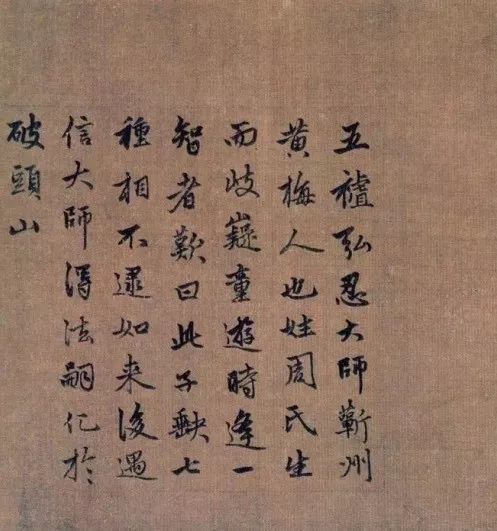 五禇弘忍大師蘄州
黄梅人也姓周氏生
而歧嶷童遊時逢一
智者歎曰此子缺七
種相不逮如来後遇
信大師得法嗣化於
破頭山